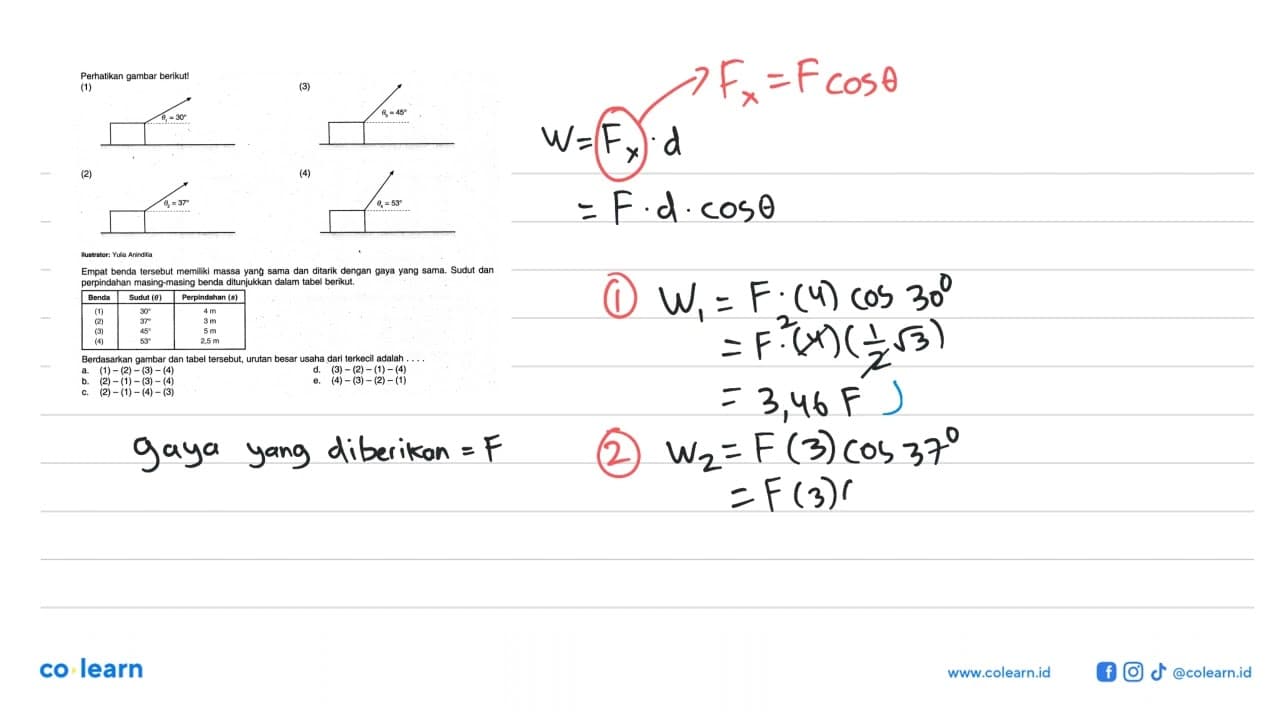 Perhatikan gambar berikut!
(1)
θ₁ = 30°
(3)
θ₃ = 45°
(2)
θ₂ = 37°
(4)
θ₄ = 53°
Ilustrator: Yulia Anindita
Empat benda tersebut memiliki massa yang sama dan ditarik dengan gaya yang sama. Sudut dan
perpindahan masing-masing benda ditunjukkan dalam tabel berikut.
Benda Sudut (θ) Perpindahan (s)
(1) 30° 4 m
(2) 37° 3 m
(3) 45° 5 m
(4) 53° 2,5 m
Berdasarkan gambar dan tabel tersebut, urutan besar usaha dari terkecil adalah . . . .
a. (1) – (2) – (3) – (4)
b. (2) – (1) – (3) – (4)
c. (2) – (1) – (4) – (3)
d. (3) – (2) – (1) – (4)
e. (4) – (3) – (2) – (1)
gaya yang diberikan = F
Fx = F cos θ
W = Fx · d
= F · d · cos θ
① W₁ = F · (4) cos 30°
= F · (4) (1/2 √3) 2
= 3,46 F
② W₂ = F (3) cos 37°
= F (3) (
co learn
www.colearn.id
@colearn.id